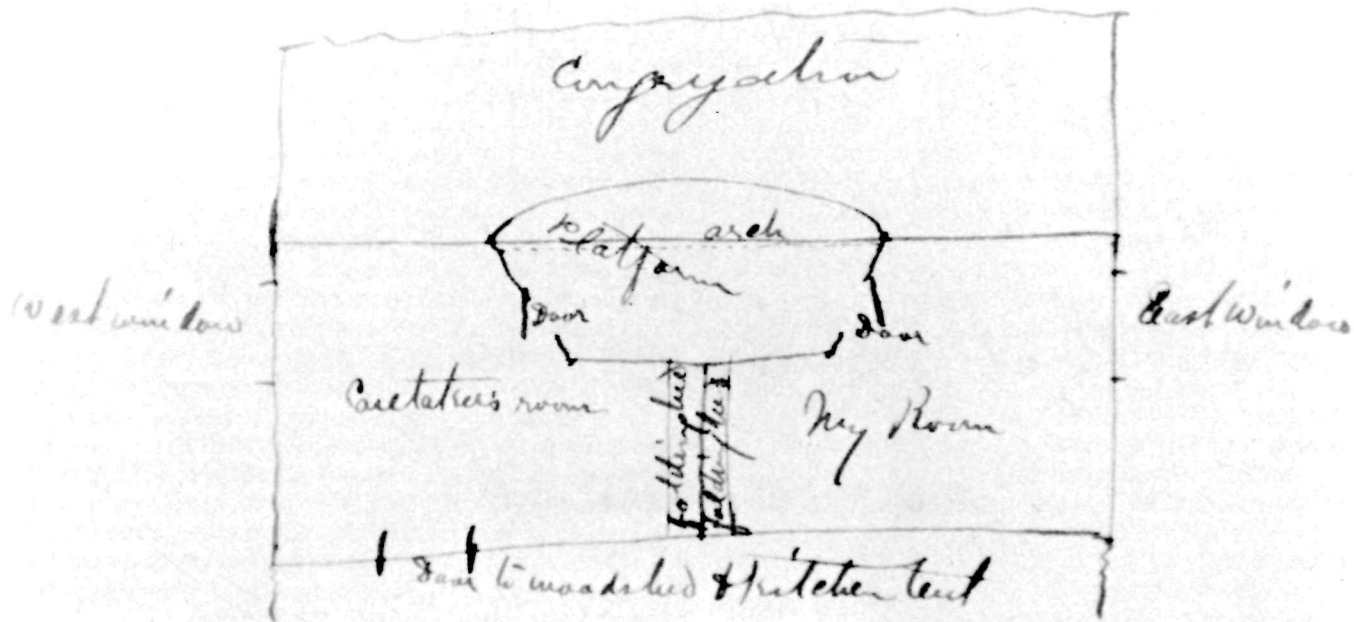 Congregation
arch
Platform
West window
East Window
Door
Door
Caretaker's room
My Room
folding bed
folding bed
Door to woodshed & kitchen tent